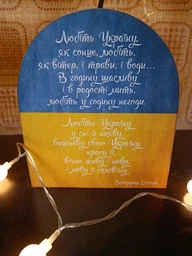 Любіть Україну,
як сонце, любіть,
як вітер, і трави, і води...
В годину щасливу
і в радості мить,
любіть у годину негоди.
Любіть Україну
у сні й наяву,
вишневу свою Україну,
красу її
вічно живу і нову,
і мову її солов'їну.
Володимир Сосюра